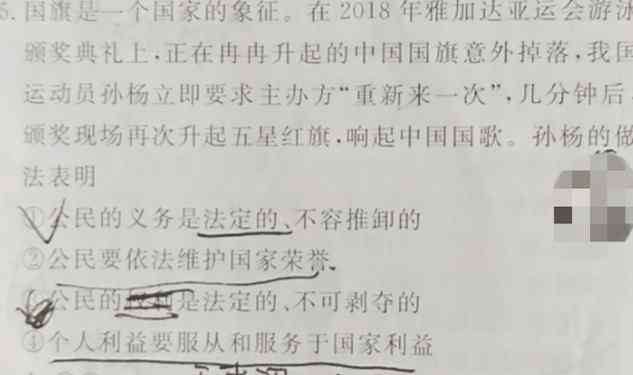 5.国旗是一个国家的象征。在2018年雅加达亚运会游泳
颁奖典礼上,正在冉冉升起的中国国旗意外掉落,我国
运动员孙杨立即要求主办方“重新来一次”,几分钟后,
颁奖现场再次升起五星红旗,响起中国国歌。孙杨的做
法表明
①公民的义务是法定的、不容推卸的
②公民要依法维护国家荣誉
公民的是法定的、不可剥夺的
④个人利益要服从和服务于国家利益